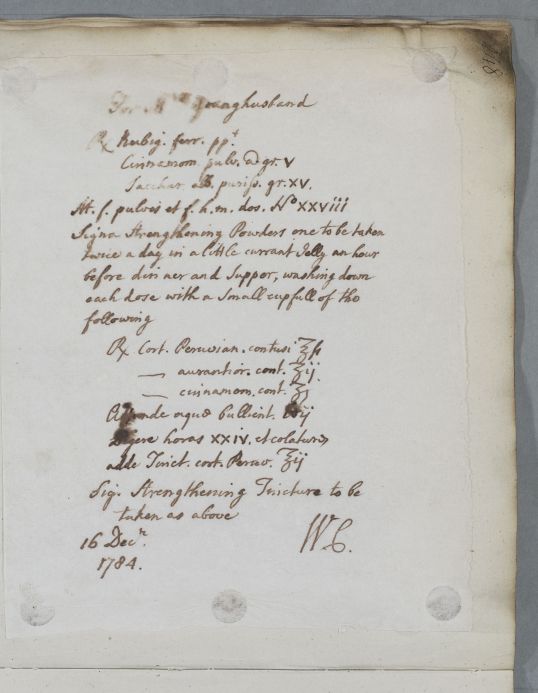 For Mrs Younghusband
℞ Rubig. ferr. ppt
Cinnamom pulv. a gr. V
Sacchar alb. puriss. gr. XV.
M. f. pulvis et f. h. m. dos. No XXVIII
Signa Strengthening Powders one to be taken
twice a day in a little currant Jelly an hour
before dinner and Supper, washing down
each dose with a Small cupfull of the
following
℞ Cort. Peruvian. contusi ℥ſs
— aurantior. cont. ʒij
— cinnamom. cont. ʒj
aquæ bullient. ij
Digere horas XXIV. et colaturæ
adde Tinct. cort. Peruv. ℥ij
Sig. Strengthening Tincture to be
taken as above
16 Decr.
1784.
WC.